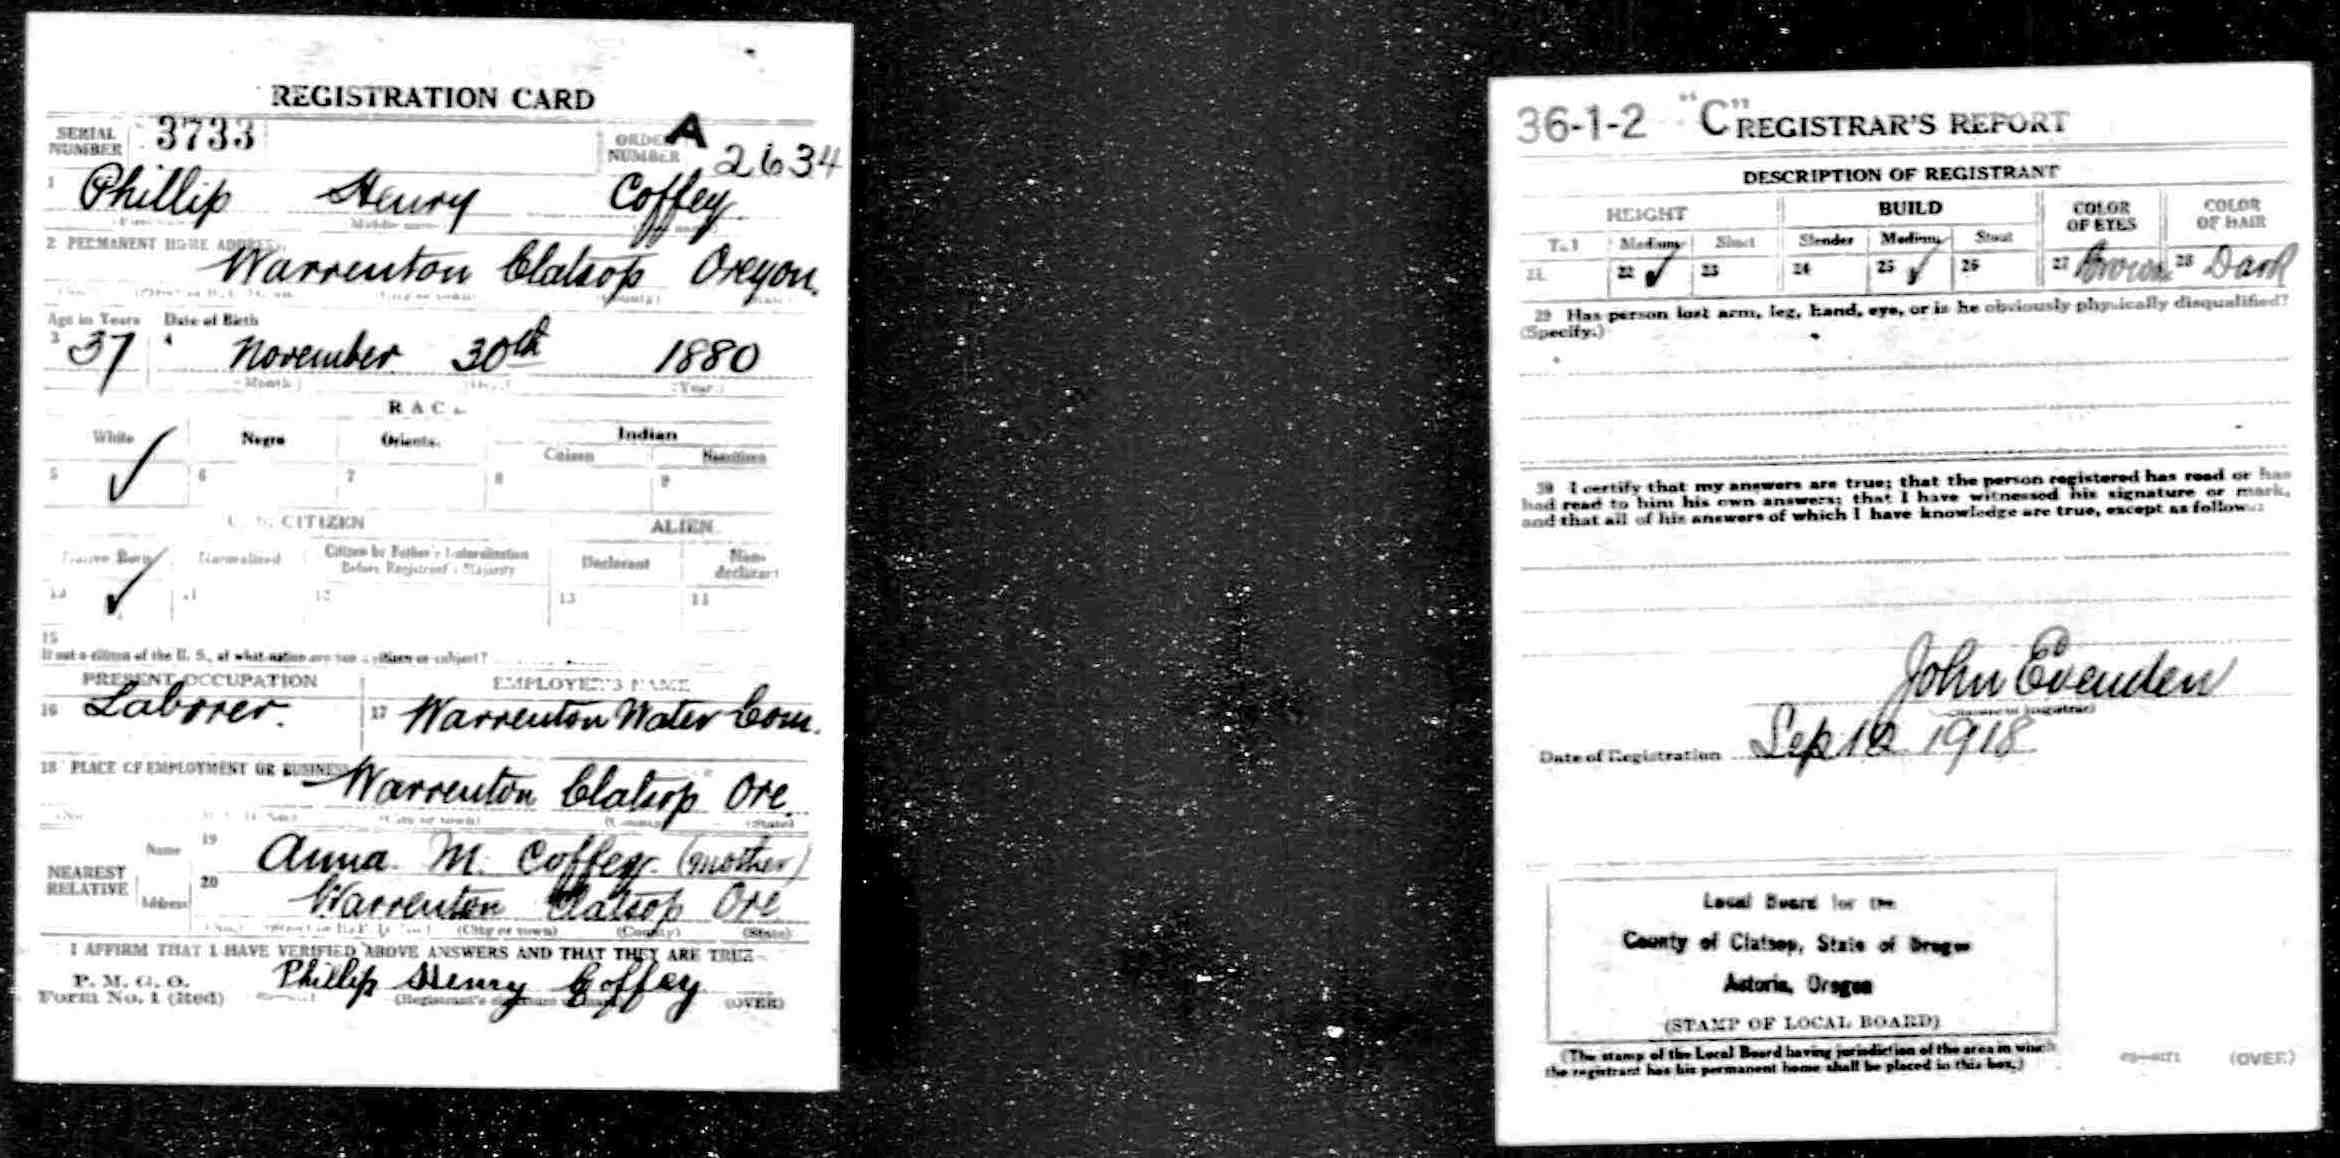 REGISTRATION CARD
SERIAL NUMBER 3733 ORDER NUMBER A 2634
1 Phillip Henry Coffey
2 PERMANENT HOME ADDRESS:
Warrenton Clatsop Oregon.
Age in Years Date of Birth
3 37 4 November 30th 1880
(Month) (Year)
RACE
White Negro Oriental Indian
Citizen Noncitizen
5 ✓ 6 7 8 9
U. S. CITIZEN ALIEN
Native Born Naturalized Citizen by Father's Naturalization Before Registrant's Majority Declarant Non-declarant
10 ✓ 11 12 13 14
15
If not a citizen of the U. S., of what nation are you a citizen or subject?
PRESENT OCCUPATION EMPLOYER'S NAME
16 Laborer. 17 Warrenton Water Com.
18 PLACE OF EMPLOYMENT OR BUSINESS
Warrenton Clatsop Ore
(City or town) (County) (State)
NEAREST RELATIVE
Name 19 Anna M. Coffey (mother)
Address 20 Warrenton Clatsop Ore
(City or town) (County) (State)
I AFFIRM THAT I HAVE VERIFIED ABOVE ANSWERS AND THAT THEY ARE TRUE
P. M. G. O.
Form No. 1 (Red) Phillip Henry Coffey (OVER)
36-1-2 "C" REGISTRAR'S REPORT
DESCRIPTION OF REGISTRANT
HEIGHT BUILD COLOR OF EYES COLOR OF HAIR
Tall Medium Short Slender Medium Stout
21 22 ✓ 23 24 25 ✓ 26 27 Brown 28 Dark
29 Has person lost arm, leg, hand, eye, or is he obviously physically disqualified?
(Specify.)
30 I certify that my answers are true; that the person registered has read or has
had read to him his own answers; that I have witnessed his signature or mark,
and that all of his answers of which I have knowledge are true, except as follows:
John Evenden
(Signature of Registrar)
Date of Registration Sep 12 1918
Local Board for the
County of Clatsop, State of Oregon
Astoria, Oregon
(STAMP OF LOCAL BOARD)
(The stamp of the Local Board having jurisdiction of the area in which
the registrant has his permanent home shall be placed in this box.)
(OVER)